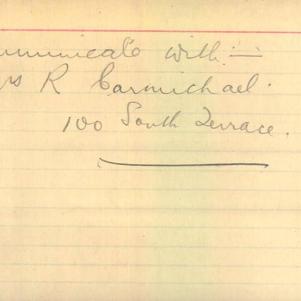 mmunicate with :—
rs R Carmichael.
100 South Terrace.